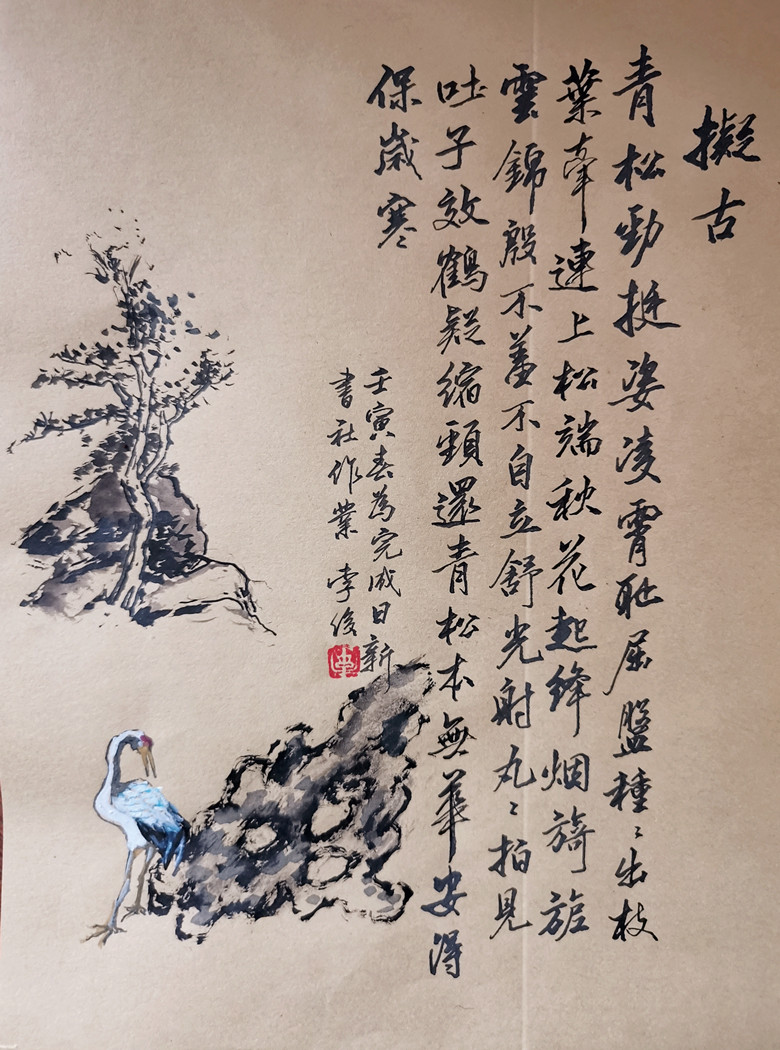 擬古
青松勁挺姿凌霄耻屈盤種〻出枝
葉牽連上松端秋花起絳烟旖旎
雲錦殷不羞不自立舒光射丸〻拍見
吐子效鶴疑縮頸還青松本無華安得
保歲寒
壬寅春為完成日新
書社作業 李俊